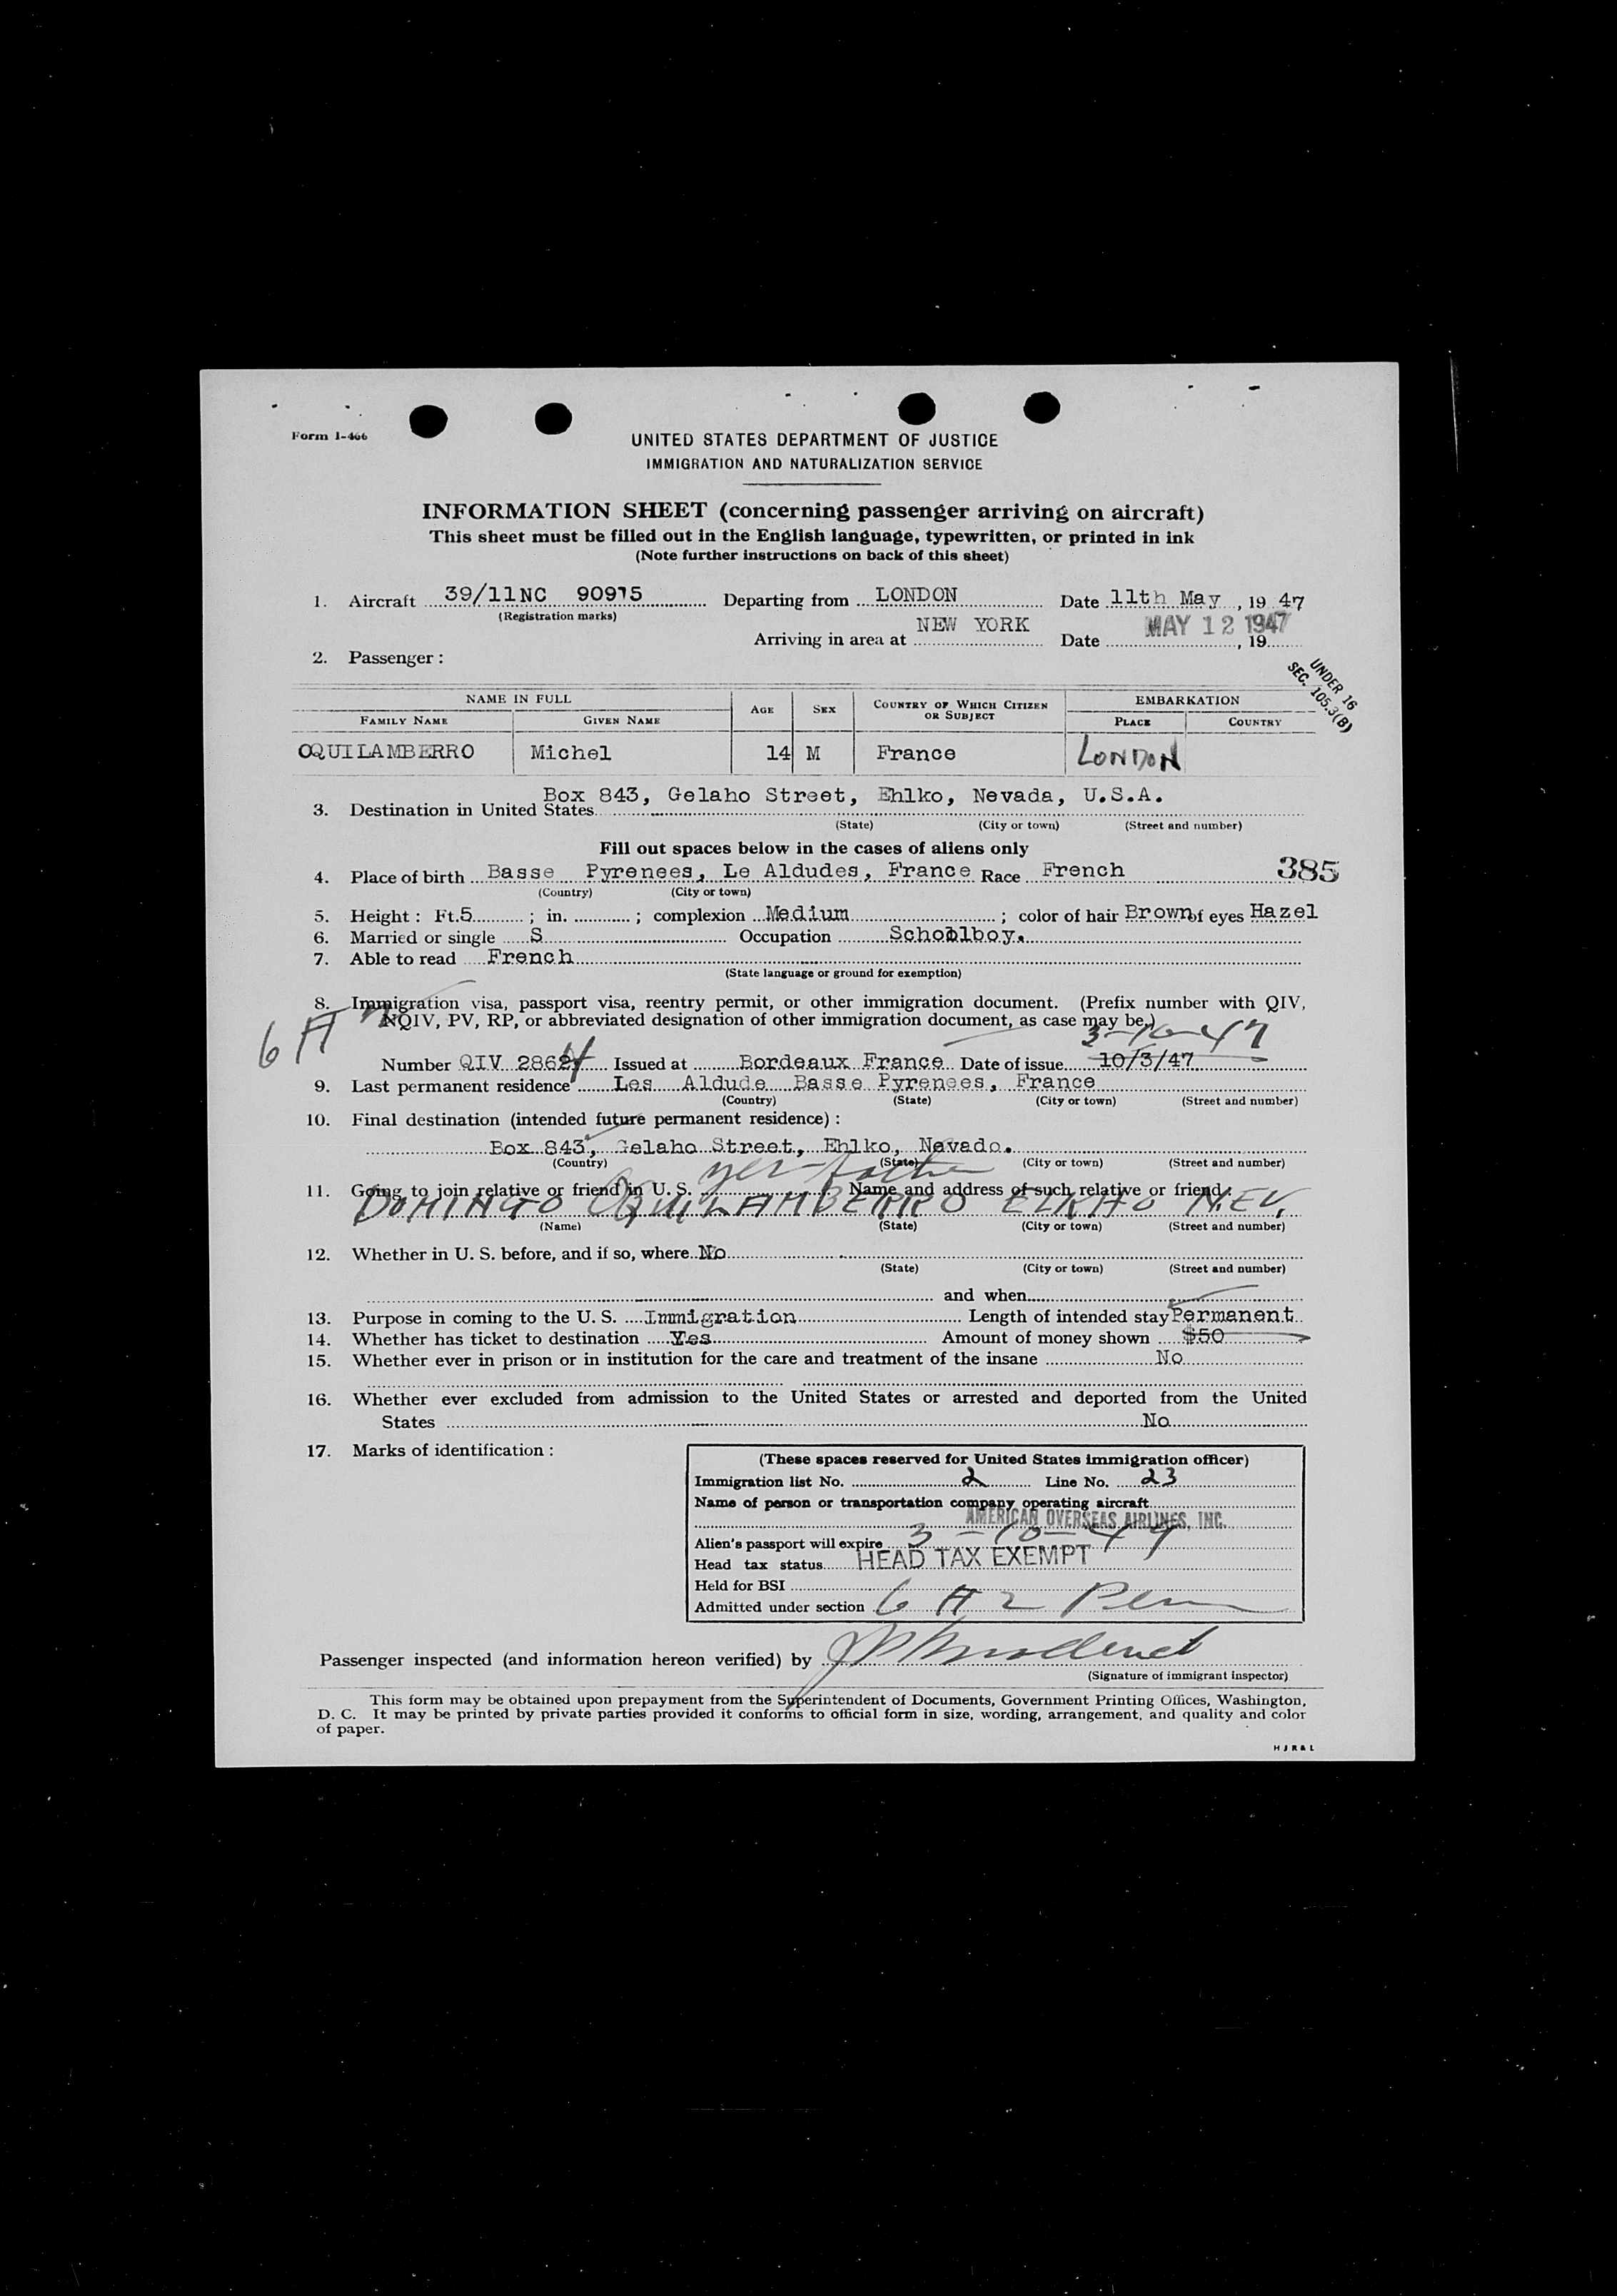 Form I-466
UNITED STATES DEPARTMENT OF JUSTICE
IMMIGRATION AND NATURALIZATION SERVICE
INFORMATION SHEET (concerning passenger arriving on aircraft)
This sheet must be filled out in the English language, typewritten, or printed in ink
(Note further instructions on back of this sheet)
1. Aircraft 39/11NC 90915 Departing from LONDON Date 11th May, 19 47
(Registration marks)
Arriving in area at NEW YORK Date MAY 12 1947, 19
2. Passenger:
UNDER 16
SEC. 105.3(B)
NAME IN FULL AGE SEX COUNTRY OF WHICH CITIZEN OR SUBJECT EMBARKATION
FAMILY NAME GIVEN NAME PLACE COUNTRY
OQUILAMBERRO Michel 14 M France LONDON
3. Destination in United States Box 843, Gelaho Street, Ehlko, Nevada, U.S.A.
(State) (City or town) (Street and number)
Fill out spaces below in the cases of aliens only
4. Place of birth Basse Pyrenees, Le Aldudes, France Race French 385
(Country) (City or town)
5. Height: Ft. 5 ; in. ; complexion Medium ; color of hair Brown of eyes Hazel
6. Married or single S Occupation Schoolboy.
7. Able to read French
(State language or ground for exemption)
8. Immigration visa, passport visa, reentry permit, or other immigration document. (Prefix number with QIV,
NQIV, PV, RP, or abbreviated designation of other immigration document, as case may be.)
6 A 2 3-10-47
Number QIV 2864 Issued at Bordeaux France Date of issue 10/3/47
9. Last permanent residence Les Aldude Basse Pyrenees, France
(Country) (State) (City or town) (Street and number)
10. Final destination (intended future permanent residence):
Box 843, Gelaho Street, Ehlko, Nevado.
(Country) (State) (City or town) (Street and number)
11. Going to join relative or friend in U. S. yes-father Name and address of such relative or friend
DOMINGO OQUILAMBERRO ELKHO NEV.
(Name) (State) (City or town) (Street and number)
12. Whether in U. S. before, and if so, where No
(State) (City or town) (Street and number)
and when
13. Purpose in coming to the U. S. Immigration Length of intended stay Permanent
14. Whether has ticket to destination Yes Amount of money shown $50
15. Whether ever in prison or in institution for the care and treatment of the insane No
16. Whether ever excluded from admission to the United States or arrested and deported from the United
States No
17. Marks of identification:
(These spaces reserved for United States immigration officer)
Immigration list No. 2 Line No. 23
Name of person or transportation company operating aircraft
AMERICAN OVERSEAS AIRLINES, INC.
Alien's passport will expire 3-10-49
Head tax status HEAD TAX EXEMPT
Held for BSI
Admitted under section 6 A 2 Perm
Passenger inspected (and information hereon verified) by
(Signature of immigrant inspector)
This form may be obtained upon prepayment from the Superintendent of Documents, Government Printing Offices, Washington,
D. C. It may be printed by private parties provided it conforms to official form in size, wording, arrangement, and quality and color
of paper.
H J R & L